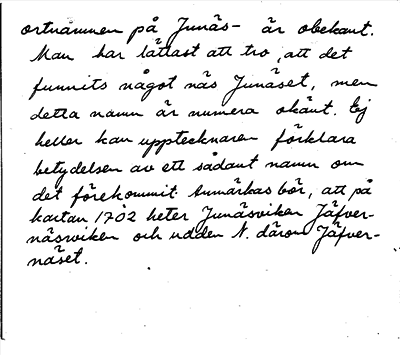 ortnamnen på Junäs- är obekant.
Man har lättast att tro, att det
funnits något näs Junäset, men
detta namn är numera okänt. Ej
heller kan upptecknaren förklara
betydelsen av ett sådant namn om
det förekommit. Anmärkas bör, att på
kartan 1702 heter Junäsviken Jäfver-
näswiken och udden N. därom Jäfver-
näset.